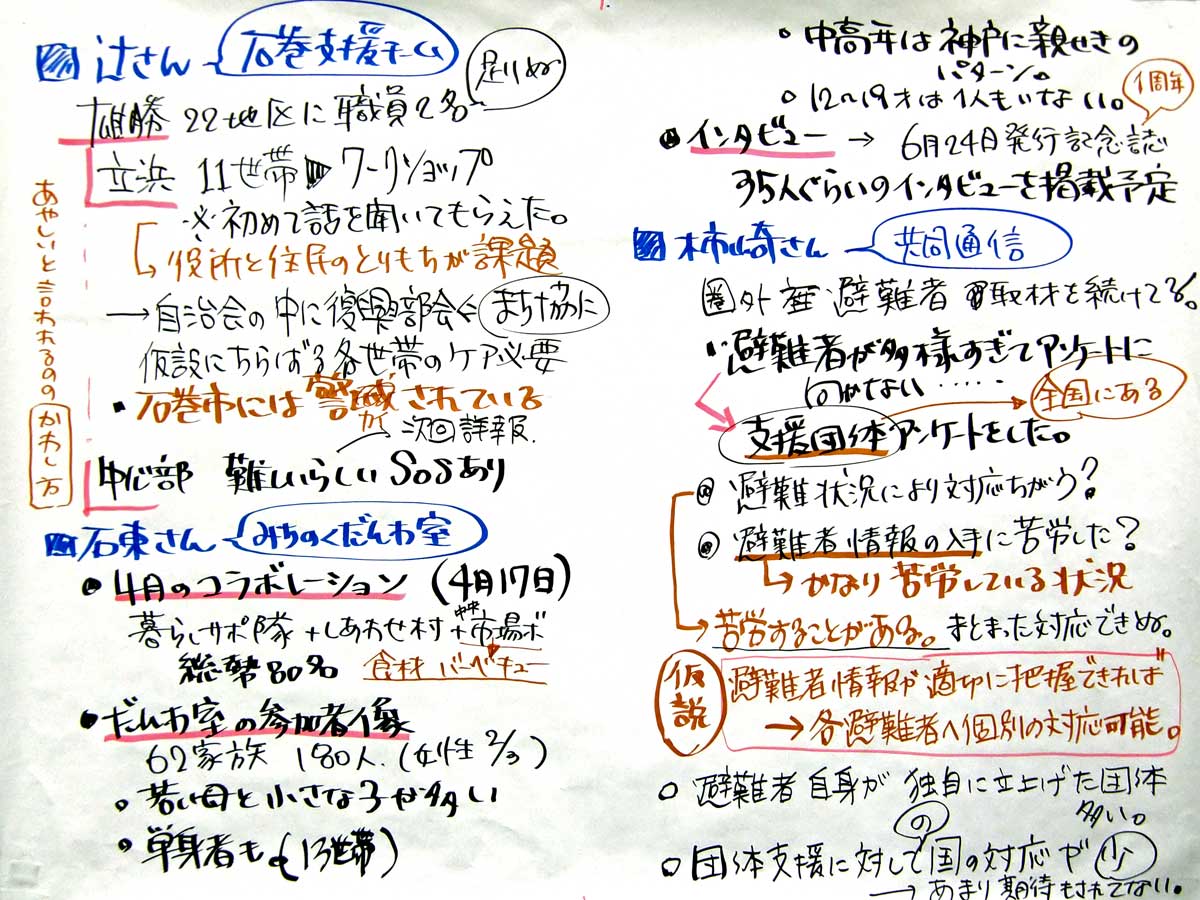 辻さん 石巻支援チーム
雄勝 22地区に職員2名 足りぬ
立浜 11世帯 ワークショップ
※初めて話を聞いてもらえた。
役所と住民のとりもちが課題
→自治会の中に復興部会< まち協に
仮設にちらばる各世帯のケア必要
・石巻市には警戒されている
が 次回詳報.
中心部 難しいらしい SOSあり
あやしいと言われるのの かわし方
石東さん みちのくだんわ室
・4月のコラボレーション (4月17日)
暮らしサポ隊+しあわせ村+中央市場ボ
総勢80名 食材 バーベキュー
・だんわ室の参加者像
62家族 180人.(女性2/3)
・若い母と小さな子が多い
・単身者も(13世帯)
・中高年は神戸に親せきの
パターン。
○12〜19才は1人もいない。
・インタビュー → 6月24日発行記念誌 1周年
35人ぐらいのインタビューを掲載予定
柿崎さん 共同通信
圏外避難者 取材を続けてる。
避難者が多様すぎてアンケートに
向かない……
支援団体アンケートをした。 全国にある
避難状況により対応ちがう?
避難者情報の入手に苦労した?
→かなり苦労している状況
→苦労することがある。まとまった対応できぬ。
仮説 避難者情報が適切に把握できれば"
→各避難者へ個別の対応可能。
○避難者自身が独自に立上げた団体
多い。
○団体支援に対しての国の対応が少
→あまり期待もされてない。